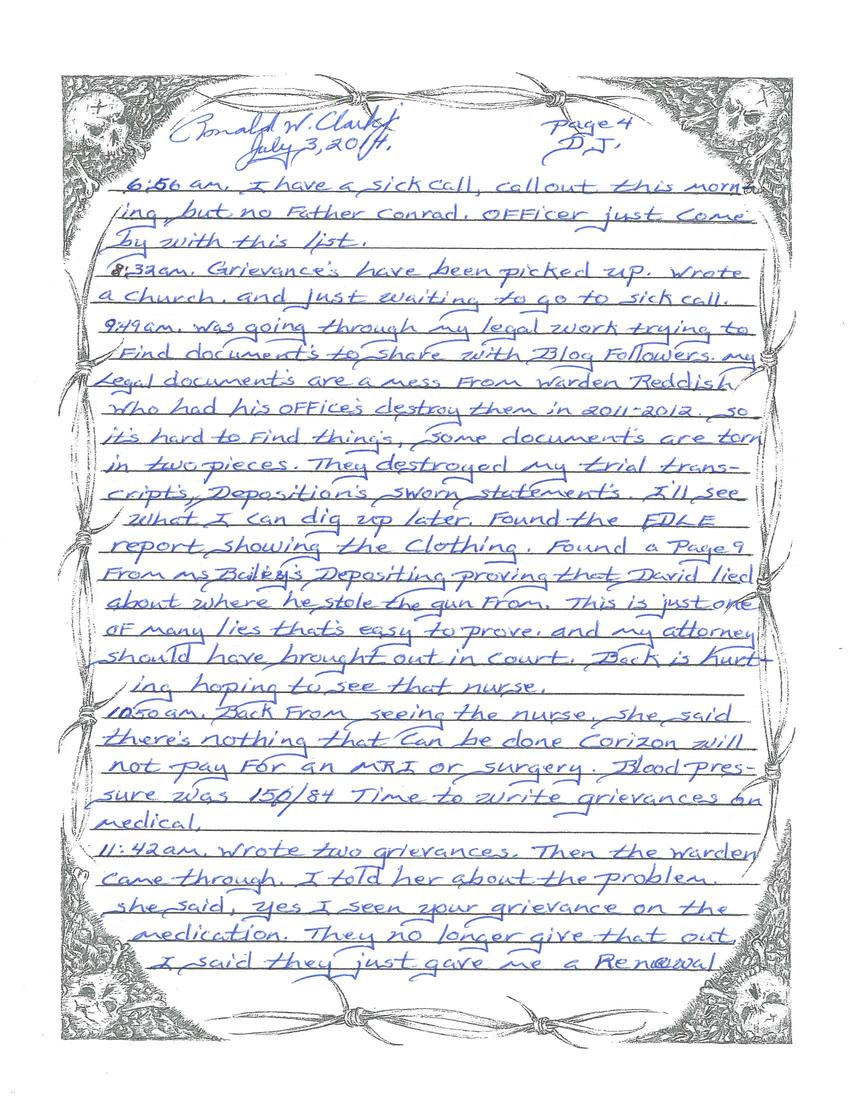 Ronald W. Clark jr
page 4
July 3, 2014.
D.J.
6:56 am. I have a sick call, callout this morn-
ing, but no Father Conrad. Officer just come
by with this list.
8:32am. Grievance's have been picked up. Wrote
a church. and just waiting to go to sick call.
9:49am. Was going through my legal work trying to
Find document's to share with Blog Followers. my
Legal document's are a mess From Warden Reddish
who had his Office's destroy them in 2011-2012. so
it's hard to Find thing's, some document's are torn
in two pieces. They destroyed my trial trans-
cript's, Deposition's sworn statement's. I'll see
what I can dig up later. Found the FDLE
report showing the Clothing. Found a Page 9
From ms Bailey's Depositing proving that David lied
about where he stole the gun From. This is just one
OF many lies that's easy to prove. and my attorney
should have brought out in court. Back is hurt-
ing hoping to see that nurse.
10:50 am. Back From seeing the nurse, she said
there's nothing that can be done Corizon will
not pay For an MRI or surgery. Blood pres-
sure was 150/84 Time to write grievances on
medical.
11:42am. Wrote two grievances. Then the warden
came through. I told her about the problem.
she said, yes I seen your grievance on the
medication. They no longer give that out
I said they just gave me a Renewal